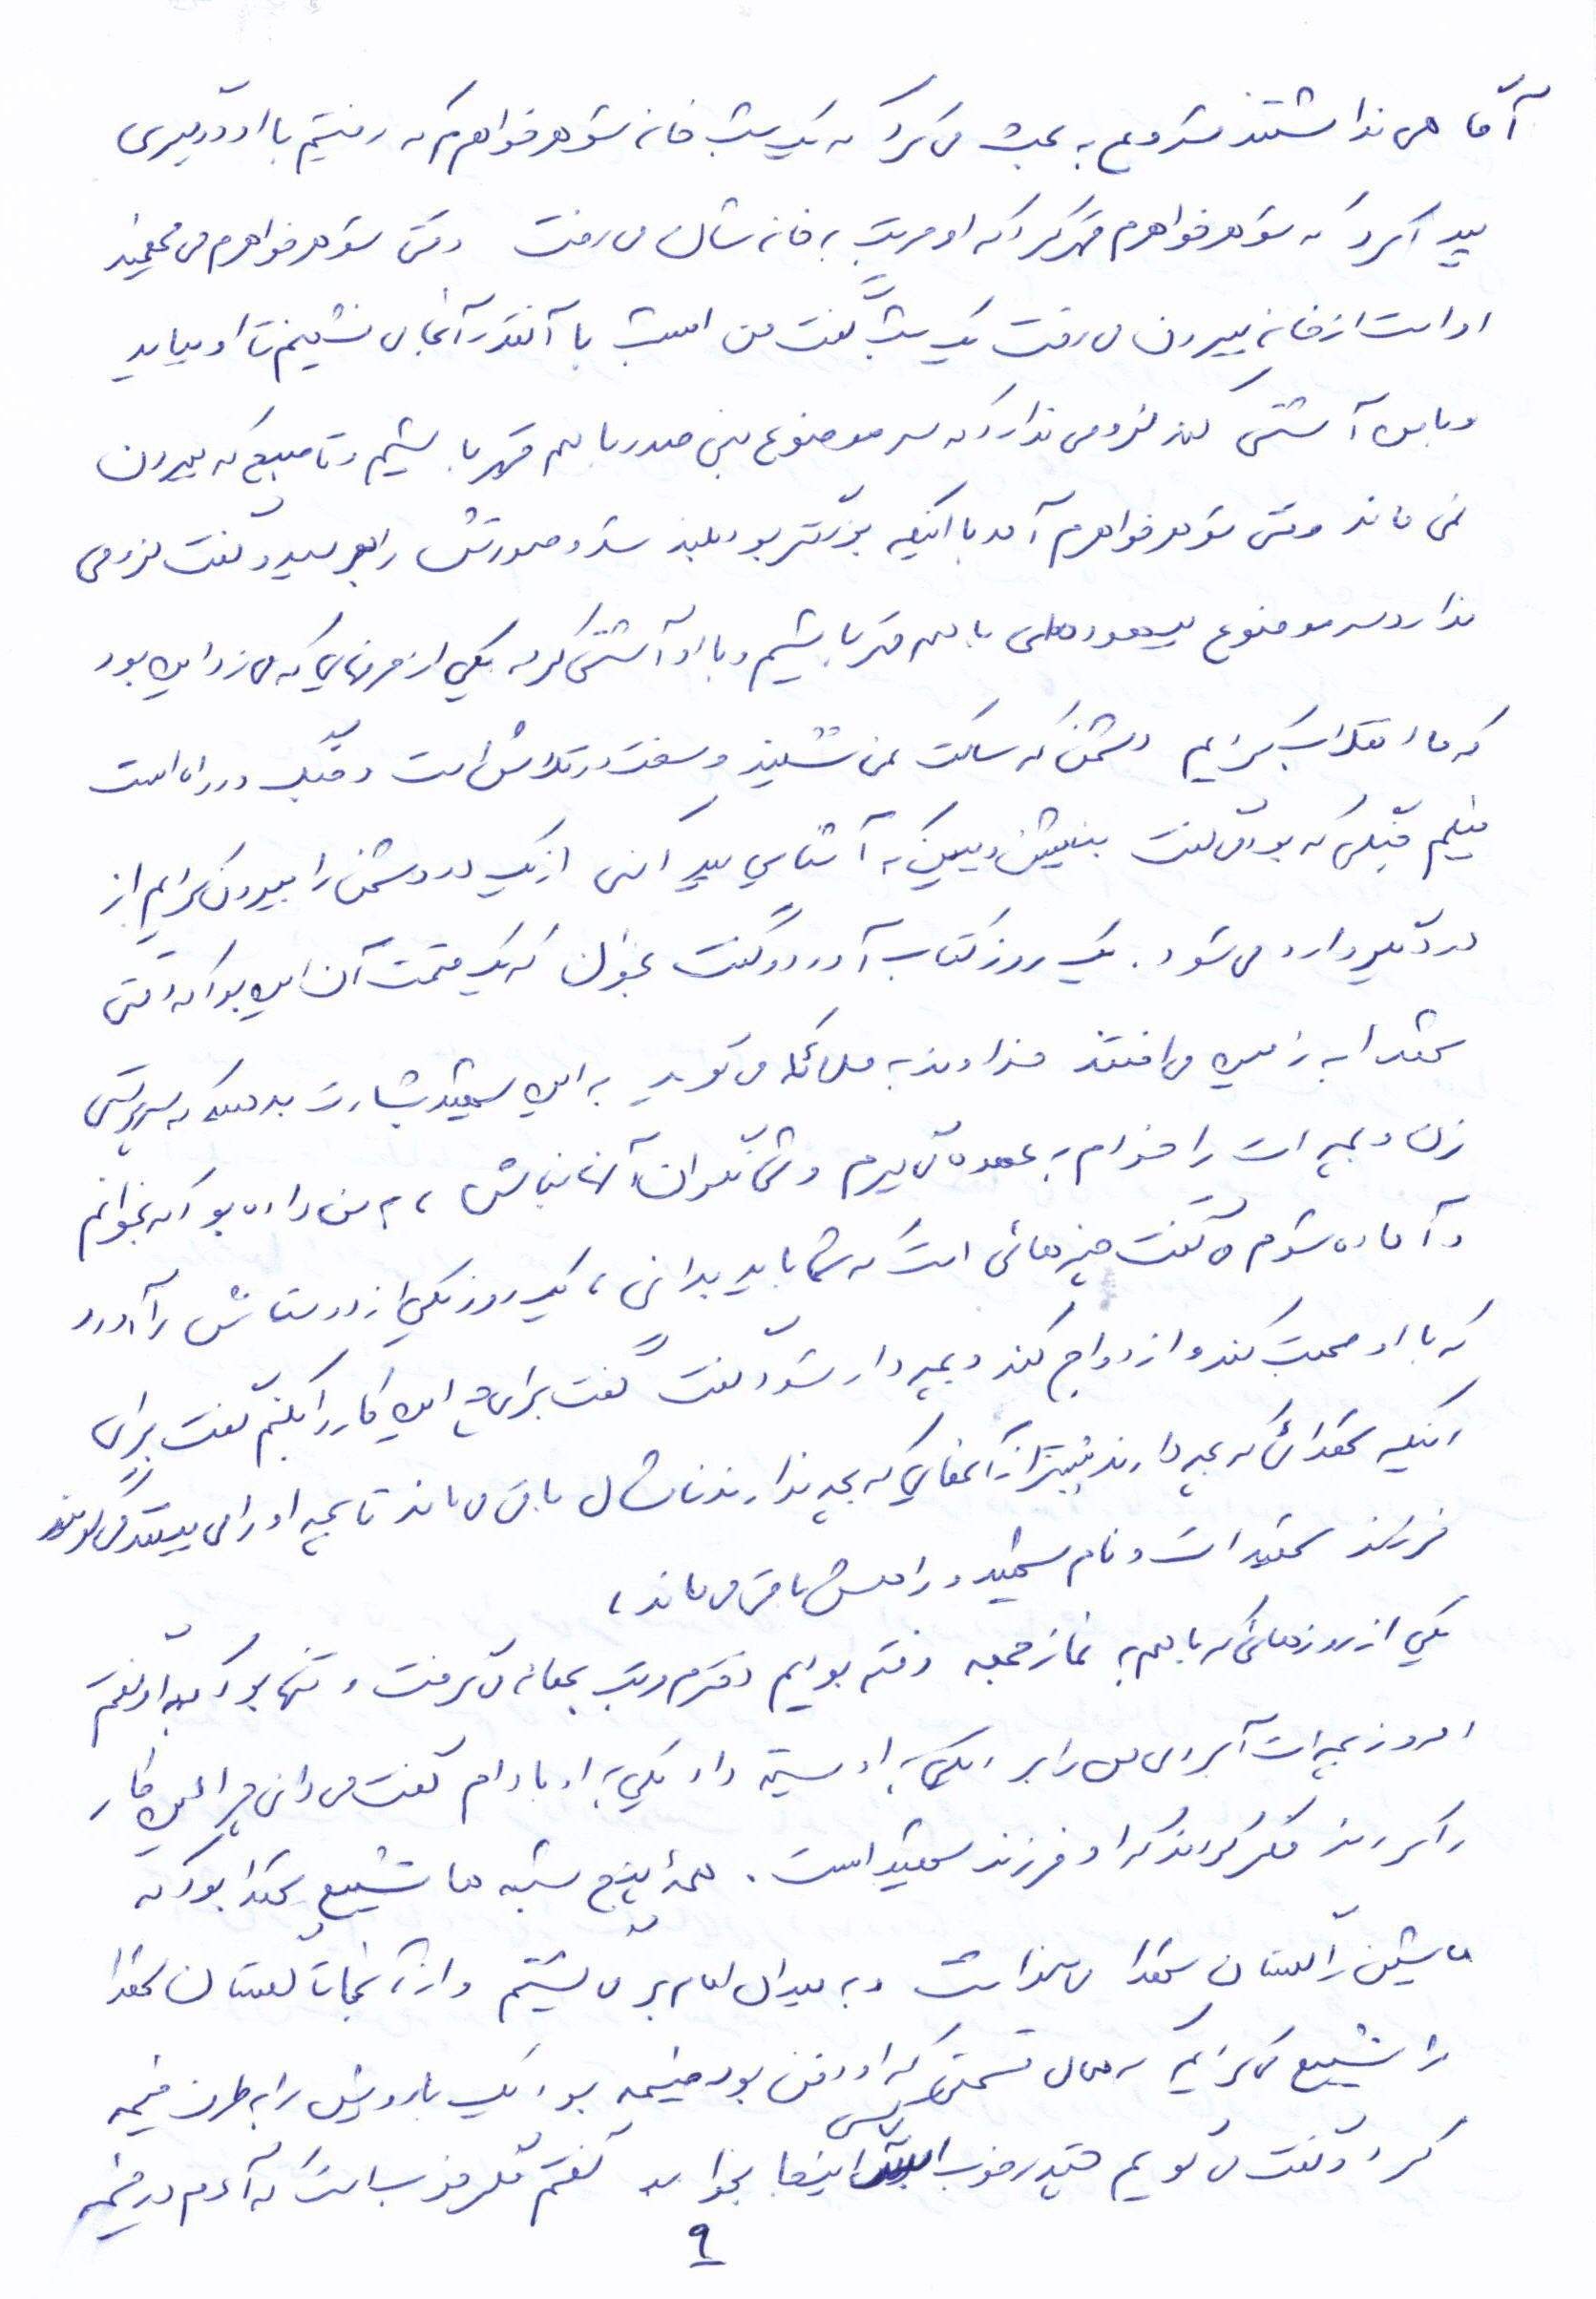 آگاهی نداشتند شروع به بحث می کرد که یک شب خانه شوهر خواهرم که رفتیم با او درگیری
پیدا کرد که شوهر خواهرم قهر کرد که او مرتب به خانه شان می رفت وقتی شوهر خواهرم می فهمید
او است از خانه بیرون می رفت یک شب گفت من امشب با آنقدر آنجا می نشینم تا او بیاید
و با من آشتی کند لزومی ندارد که سر موضوع بنی صدر با هم قهر باشیم و تا صبح که بیرون
نمی ماند وقتی شوهر خواهرم آمد با اینکه بزرگتر بود بلند شد و صورتش را بوسید و گفت لزومی
ندارد سر موضوع بیهوده با هم قهر باشیم و با او آشتی کرد یکی از حرفهایی که می زد این بود
که ما انقلاب کردیم دشمن که ساکت نمی نشیند و سخت در تلاش است و جنگ در راه است
فیلم جنگی که بود می گفت بنشین و ببین که آشنایی پیدا کنی از یک در دشمن را بیرون کردیم از
در دیگر وارد می شود. یک روز کتاب آورد و گفت بخوان که یک قسمت آن این بود که وقتی
شهدا به زمین می افتند خداوند به ملائکه می گوید به این شهید بشارت بدهید که سرپرستی
زن و بچه ات را خودم به عهده می گیرم و شما نگران آنها نباش، به من داده بود که بخوانم
و آماده شوم و گفت چیزهائی است که شما باید بدانی، یک روز یکی از دوستانش را آورد
که با او صحبت کند و ازدواج کند و بچه دار شود گفت گفت برای چه این کار را بکنم گفت برای
اینکه شهدائی که بچه دارند بیشتر از آنهایی که بچه ندارند نامشان باقی می ماند تا بچه او را می بینند می گویند
فرزند شهید است و نام شهید و راهش باقی می ماند،
یکی از روزهائی که با هم به نماز جمعه رفته بودیم دخترم مرتب بهانه می گرفت و تنها بود به او گفتم
امروز بچه ات آبروی من را برد یکی به او پسته داد یکی به او بادام گفت می دانی چرا این کار
را کردند فکر کردند که او فرزند شهید است. همه پنج شنبه ها تشییع شهدا بود که
ماشین را گلستان شهدا می گذاشت و به میدان امام بر می گشتیم و از آنجا تا گلستان شهدا
را تشییع می کردیم که همان قسمتی که او دفن بود خیمه بود یک بار رویش را به طرف خیمه
کرد و گفت می گویم چقدر خوب است کسی اینجا بخوابد گفتم مگر خوب است که آدم در خیمه
۹